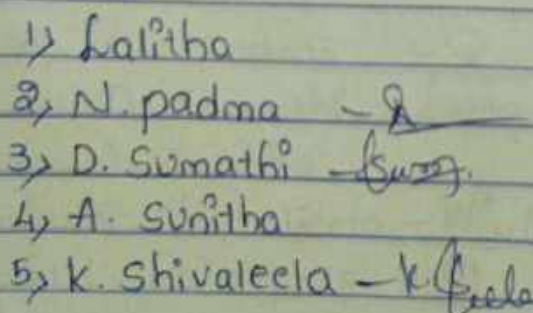 1) Lalitha
2) N. padma -
3) D. Sumathi -
4) A. Sunitha
5) K. Shivaleela - K